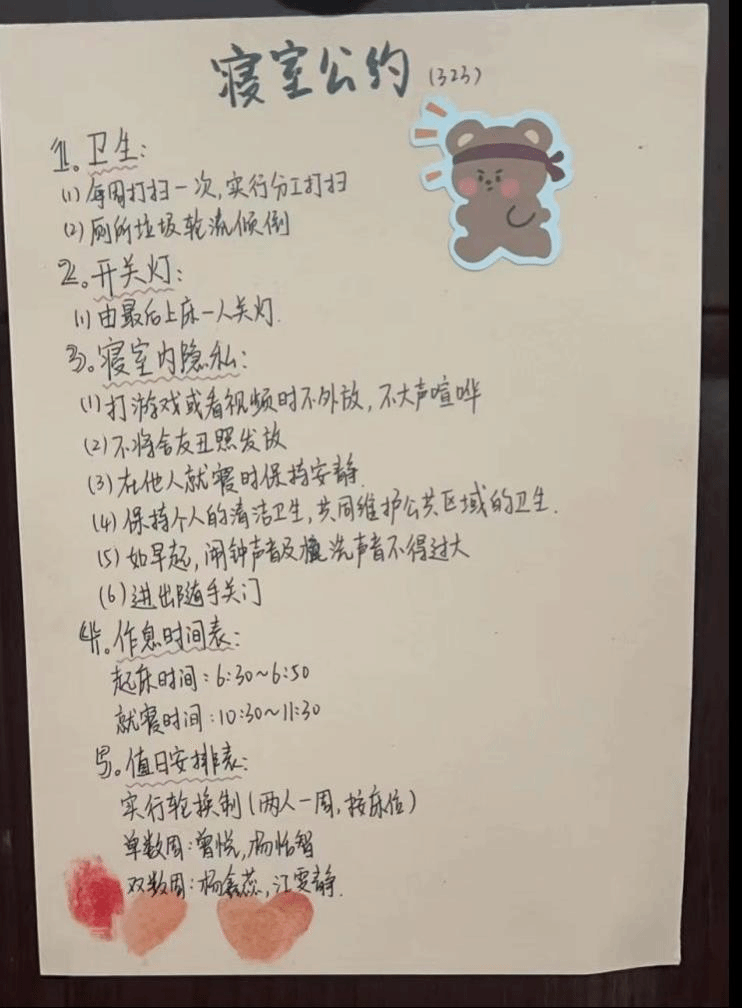 寝室公约(323)
1。卫生:
(1)每周打扫一次,实行分工打扫
(2)厕所垃圾轮流倾倒
2。开关灯:
(1)由最后上床一人关灯.
3。寝室内隐私:
(1)打游戏或看视频时不外放,不大声喧哗
(2)不将舍友丑照发放
(3)在他人就寝时保持安静.
(4)保持个人的清洁卫生,共同维护公共区域的卫生.
(5)如早起,闹钟声音及洗声音不得过大
(6)进出随手关门
4。作息时间表:
起床时间:6:30~6:50
就寝时间:10:30~11:30
5。值日安排表:
实行轮换制(两人一周,按床位)
单数周:曾悦,杨怡智
双数周:杨鑫蕊,江雯静.